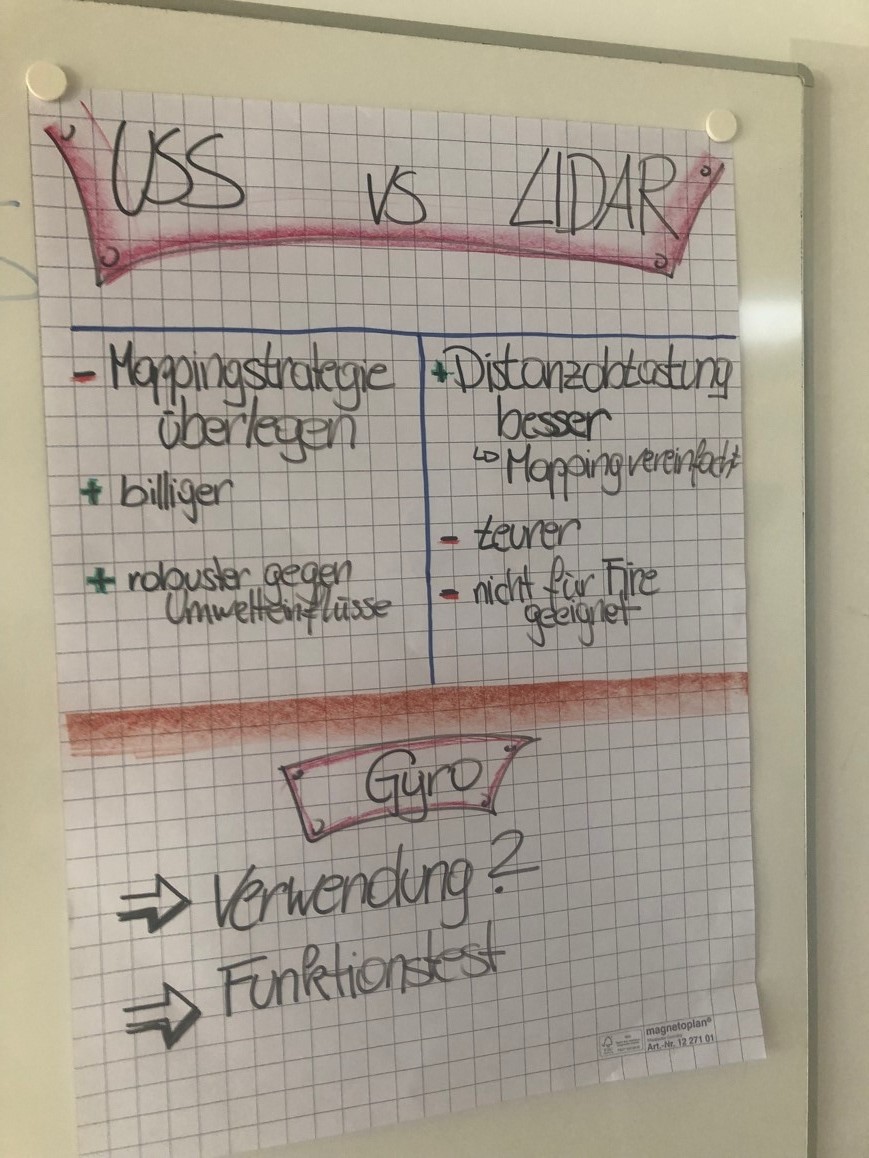 USS vs LIDAR
- Mappingstrategie
überlegen
+ billiger
+ robuster gegen
Umwelteinflüsse
+ Distanzabtastung
besser
↳ Mapping vereinfacht
- teurer
- nicht für Fire
geeignet
Gyro
⇒ Verwendung?
⇒ Funktionstest
magnetoplan®
Art.-Nr. 12 271 01